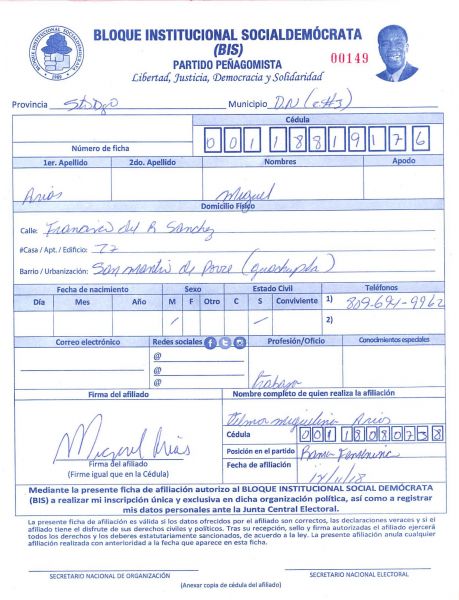 BLOQUE INSTITUCIONAL SOCIALDEMÓCRATA
(BIS)
PARTIDO PEÑAGOMISTA
00149
Libertad, Justicia, Democracia y Solidaridad
BLOQUE INSTITUCIONAL SOCIALDEMOCRATA
Provincia Sto Dgo Municipio D.N (C#3)
Cédula
Número de ficha 0 0 1 1 8 8 1 9 1 7 6
1er. Apellido 2do. Apellido Nombres Apodo
Arias Miguel
Domicilio Físico
Calle: Francisco del R Sanchez
#Casa / Apt. / Edificio: 77
Barrio / Urbanización: San martin de Porre (guachupita)
Fecha de nacimiento Sexo Estado Civil Teléfonos
Día Mes Año M F Otro C S Conviviente 1) 809-691-9962
/ / 2)
Correo electrónico Redes sociales Profesión/Oficio Conocimientos especiales
@
@
@ trabajo
Firma del afiliado Nombre completo de quien realiza la afiliación
miguelina Arias
Miguel Arias Cédula 0 0 1 1 8 0 8 0 7 3 8
Firma del afiliado Posición en el partido Rama Femenina
(Firma igual que en la Cédula) Fecha de afiliación 12/11/18
Mediante la presente ficha de afiliación autorizo al BLOQUE INSTITUCIONAL SOCIAL DEMÓCRATA
(BIS) a realizar mi inscripción única y exclusiva en dicha organización política, así como a registrar
mis datos personales ante la Junta Central Electoral.
La presente afiliación es válida si los datos ofrecidos por el afiliado son correctos, las declaraciones veraces y si el
afiliado tiene el disfrute de sus derechos civiles y políticos. Tras su recepción, sello y firma autorizadas el afiliado ejercerá
todos los derechos y los deberes estatutariamente sancionados, de acuerdo a la ley. La presente afiliación anula cualquier
afiliación realizada con anterioridad a la fecha que aparece en esta ficha.
SECRETARIO NACIONAL DE ORGANIZACIÓN SECRETARIO NACIONAL ELECTORAL
(Anexar copia de cédula del afiliado)